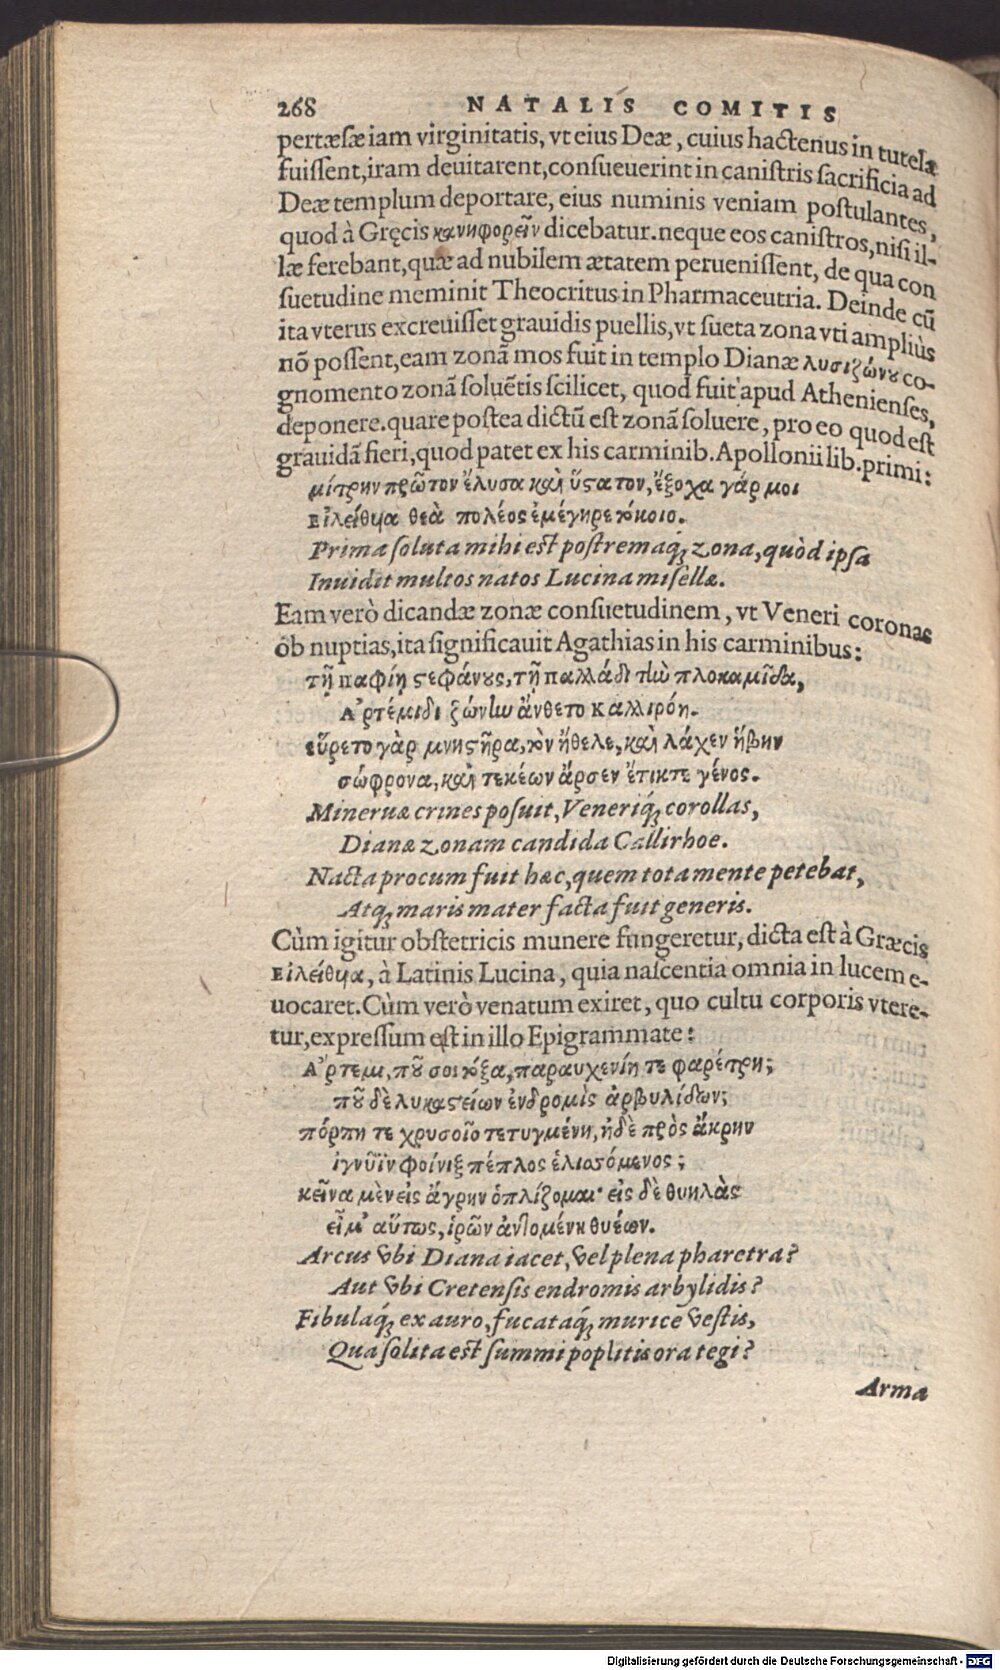 268 NATALIS COMITIS
pertæsæ iam virginitatis, vt eius Deæ, cuius hactenus in tutela
fuissent, iram deuitarent, consueuerint in canistris sacrificia ad
Deæ templum deportare, eius numinis veniam postulantes,
quod à Gręcis κανηφορεῖν dicebatur. neque eos canistros, nisi il-
læ ferebant, quæ ad nubilem ætatem peruenissent, de qua con
suetudine meminit Theocritus in Pharmaceutria. Deinde cũ
ita vterus excreuisset grauidis puellis, vt sueta zona vti ampliùs
nõ possent, eam zonã mos fuit in templo Dianæ λυσιζώνου co-
gnomento zonã soluẽtis scilicet, quod fuit apud Athenienses,
deponere. quare postea dictũ est zonã soluere, pro eo quod est
grauidã fieri, quod patet ex his carminib. Apollonii lib. primi:
μίτρην πρῶτον ἔλυσα καὶ ὕστατον, ἔξοχα γάρ μοι
Εἰλείθυα θεὰ πολέος ἐμέγηρε τόκοιο.
Prima soluta mihi est postremaq́; zona, quòd ipsa
Inuidit multos natos Lucina misellæ.
Eam verò dicandæ zonæ consuetudinem, vt Veneri coronas
ob nuptias, ita significauit Agathias in his carminibus:
τῇ παφίῃ στεφάνους, τῇ παλλάδι τὼ πλοκαμῖδα,
Ἀρτέμιδι ζώνην ἄνθετο Καλλιρόη.
εὕρετο γὰρ μνηστῆρα, τὸν ἤθελε, καὶ λάχεν ἥβην
σώφρονα, καὶ τεκέων ἄρσεν ἔτικτε γένος.
Mineruæ crines posuit, Veneriq́; corollas,
Dianæ zonam candida Callirhoe.
Nacta procum fuit hæc, quem tota mente petebat,
Atq; maris mater facta fuit generis.
Cùm igitur obstetricis munere fungeretur, dicta est à Græcis
Εἰλείθυα, à Latinis Lucina, quia nascentia omnia in lucem e-
uocaret. Cùm verò venatum exiret, quo cultu corporis vtere-
tur, expressum est in illo Epigrammate:
Ἄρτεμι, ποῦ σοι τόξα, παραυχενίη τε φαρέτρη;
ποῦ δὲ λυκαστείων ἐνδρομὶς ἀρβυλίδων;
πόρπη τε χρυσοῖο τετυγμένη, ἠδὲ πρὸς ἄκρην
ἰγνύϊν φοίνιξ πέπλος ἑλισσόμενος;
κεῖνα μὲν εἰς ἄγρην ὁπλίζομαι· εἰς δὲ θυηλὰς
εἶμ' αὕτως, ἱρῶν ἀντομένη θυέων.
Arcus vbi Diana iacet, vel plena pharetra?
Aut vbi Cretensis endromis arbylidis?
Fibulaq́; ex auro, fucataq́; murice vestis,
Qua solita est summi poplitis ora tegi?
Arma
Digitalisierung gefördert durch die Deutsche Forschungsgemeinschaft - DFG